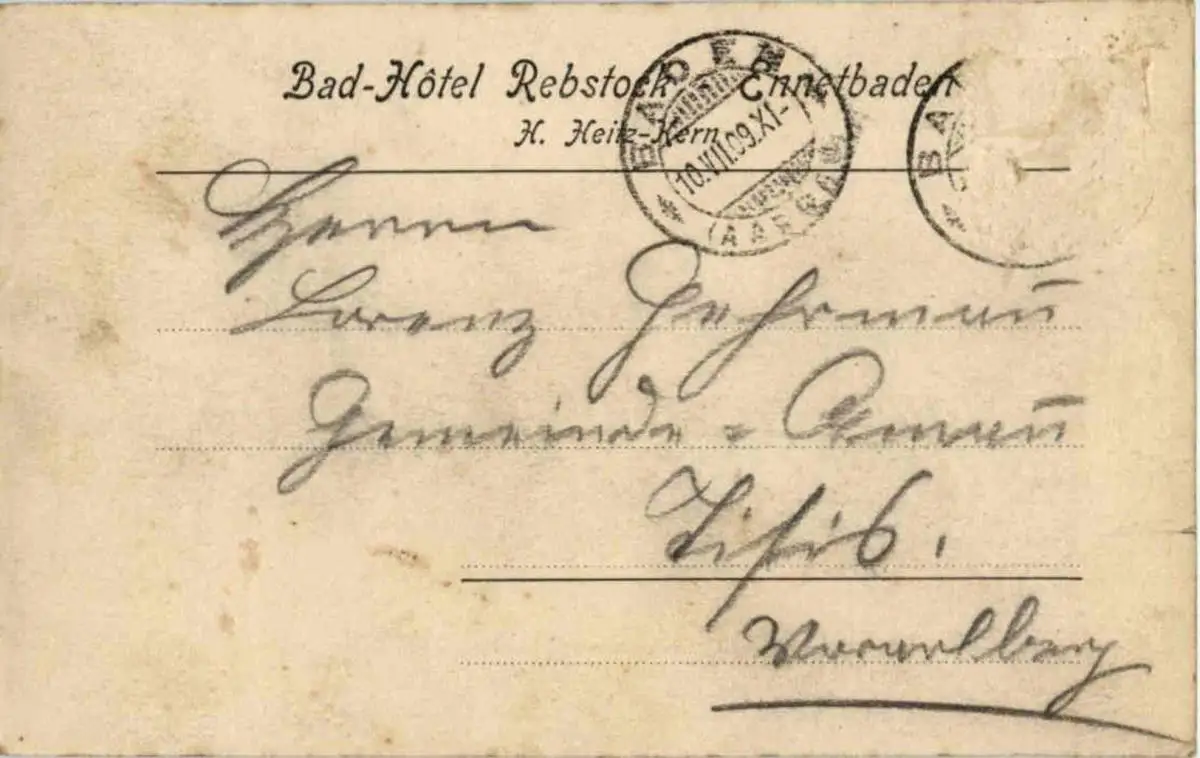 Bad-Hôtel Rebstock Ennetbaden
H. Heitz-Kern
BADEN
10.VII.09.XI-
(AARGAU)
BA
Herrn
Lorenz Gehrmañ
Gemeinde = Amañ
Tisis.
Vorarlberg